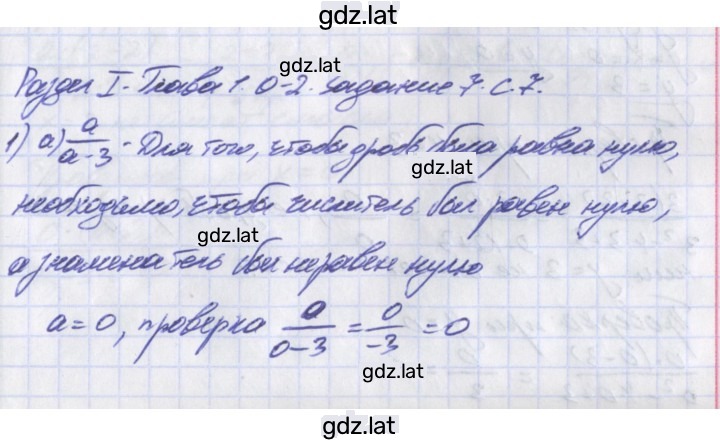 gdz.lat
gdz.lat
Раздел I. Глава 1. О-2. Задание 7. с.7.
1) а) a/(a-3) - Для того, чтобы дробь была равна нулю,
необходимо, чтобы числитель был равен нулю,
gdz.lat
а знаменатель был неравен нулю
a=0, проверка a/(0-3) = 0/(-3) = 0
gdz.lat
gdz.lat